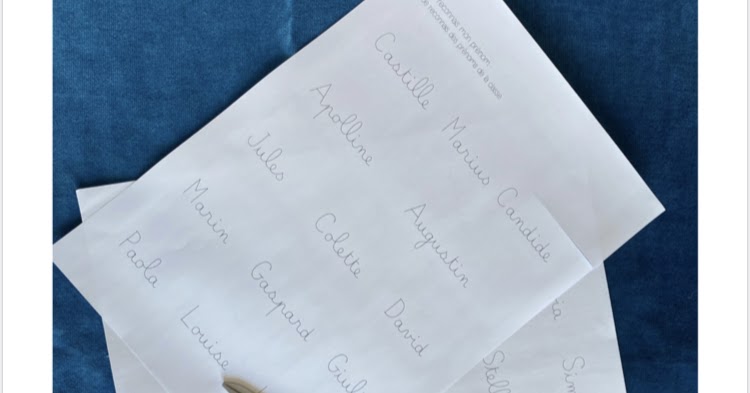 reconnais mon prénom
reconnais des prénoms de la classe
Castille Marius Candide
Apolline Augustin
Jules Colette David
Marin Gaspard Giul
Paola Louise
ia Sim
Stell